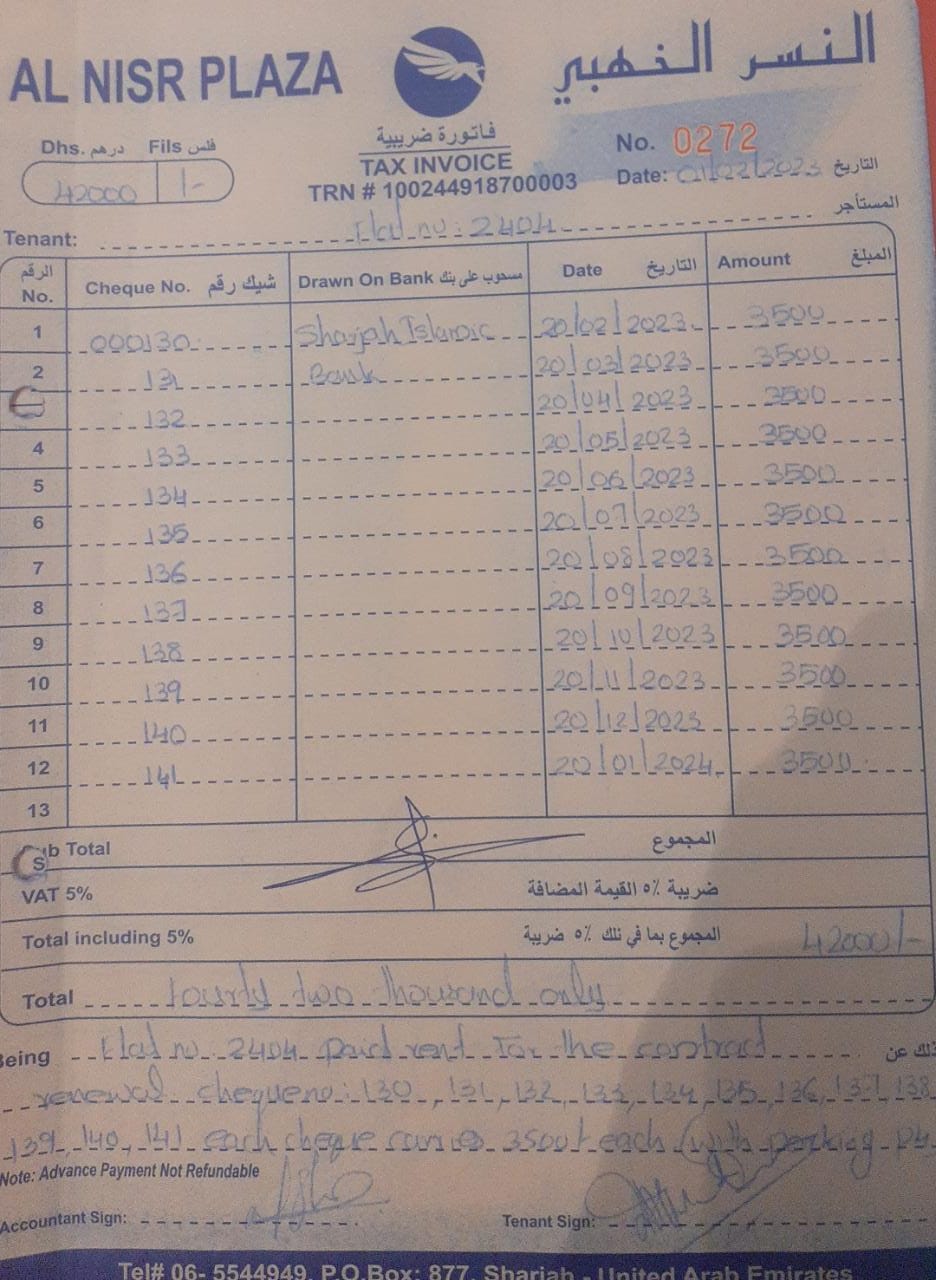 AL NISR PLAZA
النسر الذهبي
Dhs. درهم Fils فلس
42000 /-
فاتورة ضريبية
TAX INVOICE
TRN # 100244918700003
No. 0272
Date: 01/02/2023 التاريخ
Tenant: Flat no: 2404 المستأجر
الرقم No. Cheque No. شيك رقم Drawn On Bank مسحوب على بنك Date التاريخ Amount المبلغ
1 000130 Sharjah Islamic 20/02/2023 3500
2 131 Bank 20/03/2023 3500
132 20/04/2023 3500
4 133 20/05/2023 3500
5 134 20/06/2023 3500
6 135 20/07/2023 3500
7 136 20/08/2023 3500
8 137 20/09/2023 3500
9 138 20/10/2023 3500
10 139 20/11/2023 3500
11 140 20/12/2023 3500
12 141 20/01/2024 3500
13
Sub Total المجموع
VAT 5% ضريبة ٥% القيمة المضافة
Total including 5% المجموع بما في ذلك ٥% ضريبة 42000/-
Total fourty two thousand only
Being Flat no: 2404 paid rent for the contract ذلك عن
renewal chequeno: 130, 131, 132, 133, 134, 135, 136, 137, 138
139, 140, 141 each cheque carries 3500/- each (with parking P4
Note: Advance Payment Not Refundable
Accountant Sign: Tenant Sign:
Tel# 06- 5544949, P.O.Box: 877, Sharjah - United Arab Emirates